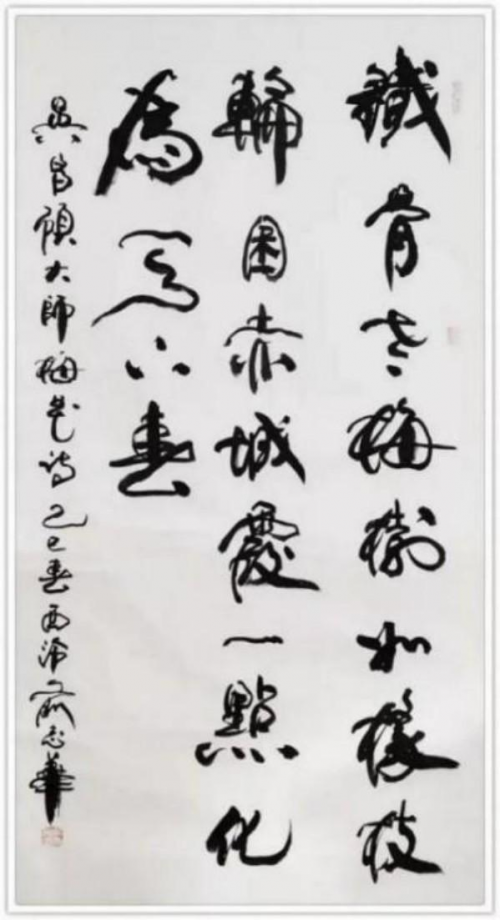 鐵骨老梅樹如椽枝
輪囷赤城霞一點化
為天下春
吳昌碩大師梅花詩己巳春西泠俞志華